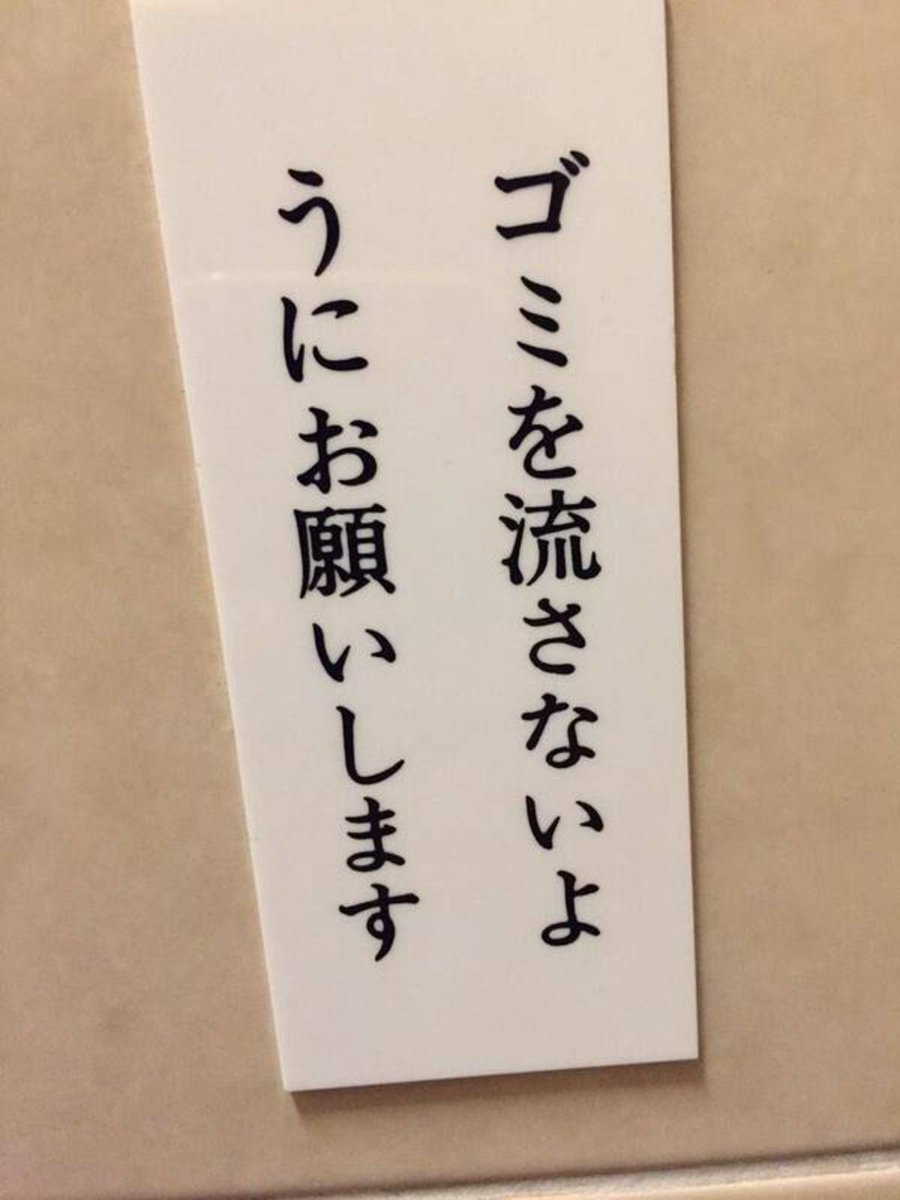 ゴミを流さないよ
うにお願いします